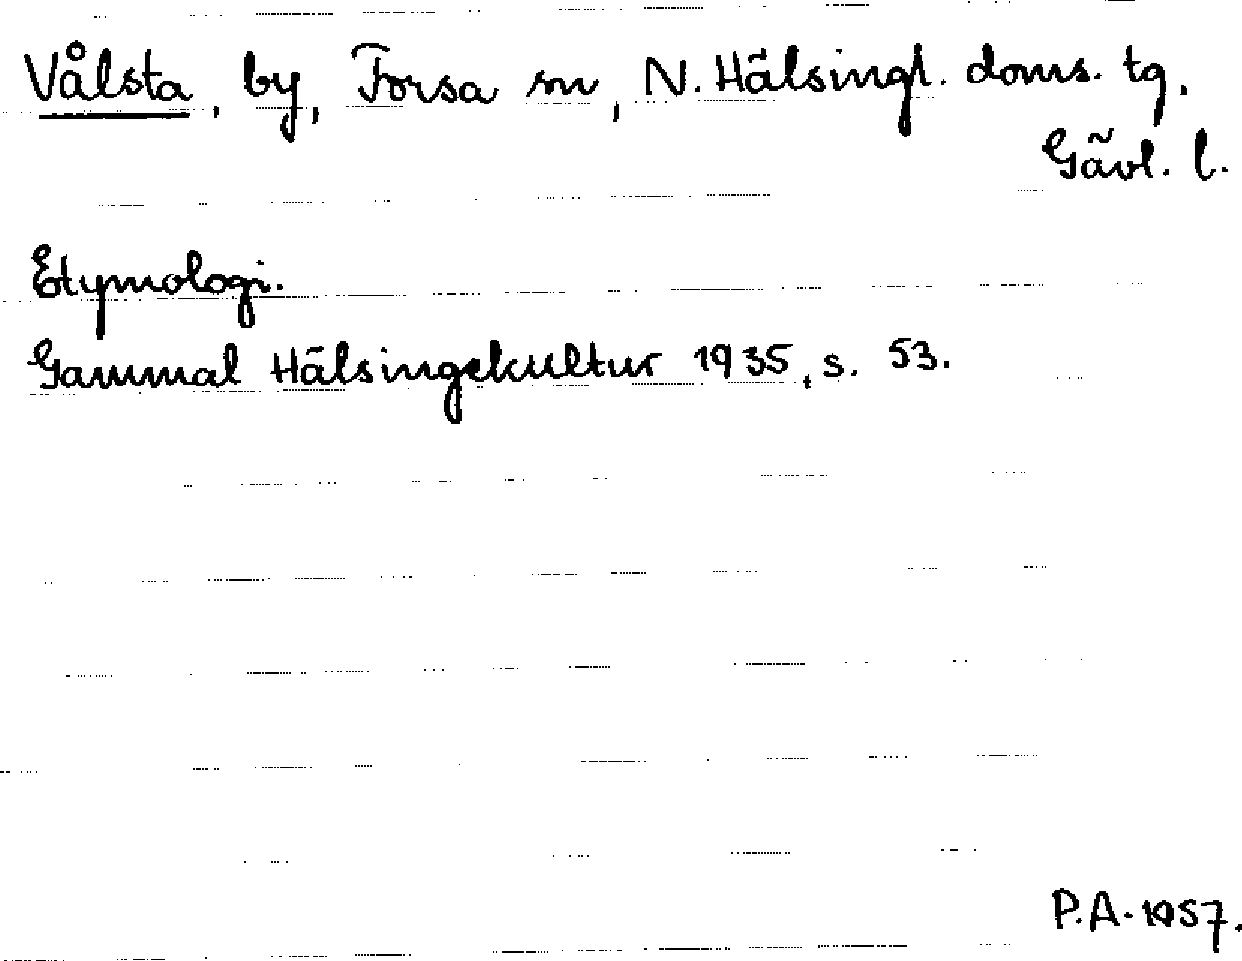 Vålsta, by, Forsa sn, N. Hälsingl. doms. tg.
Gävl. l.
Etymologi.
Gammal Hälsingekultur 1935, s. 53.
P.A. 1957.